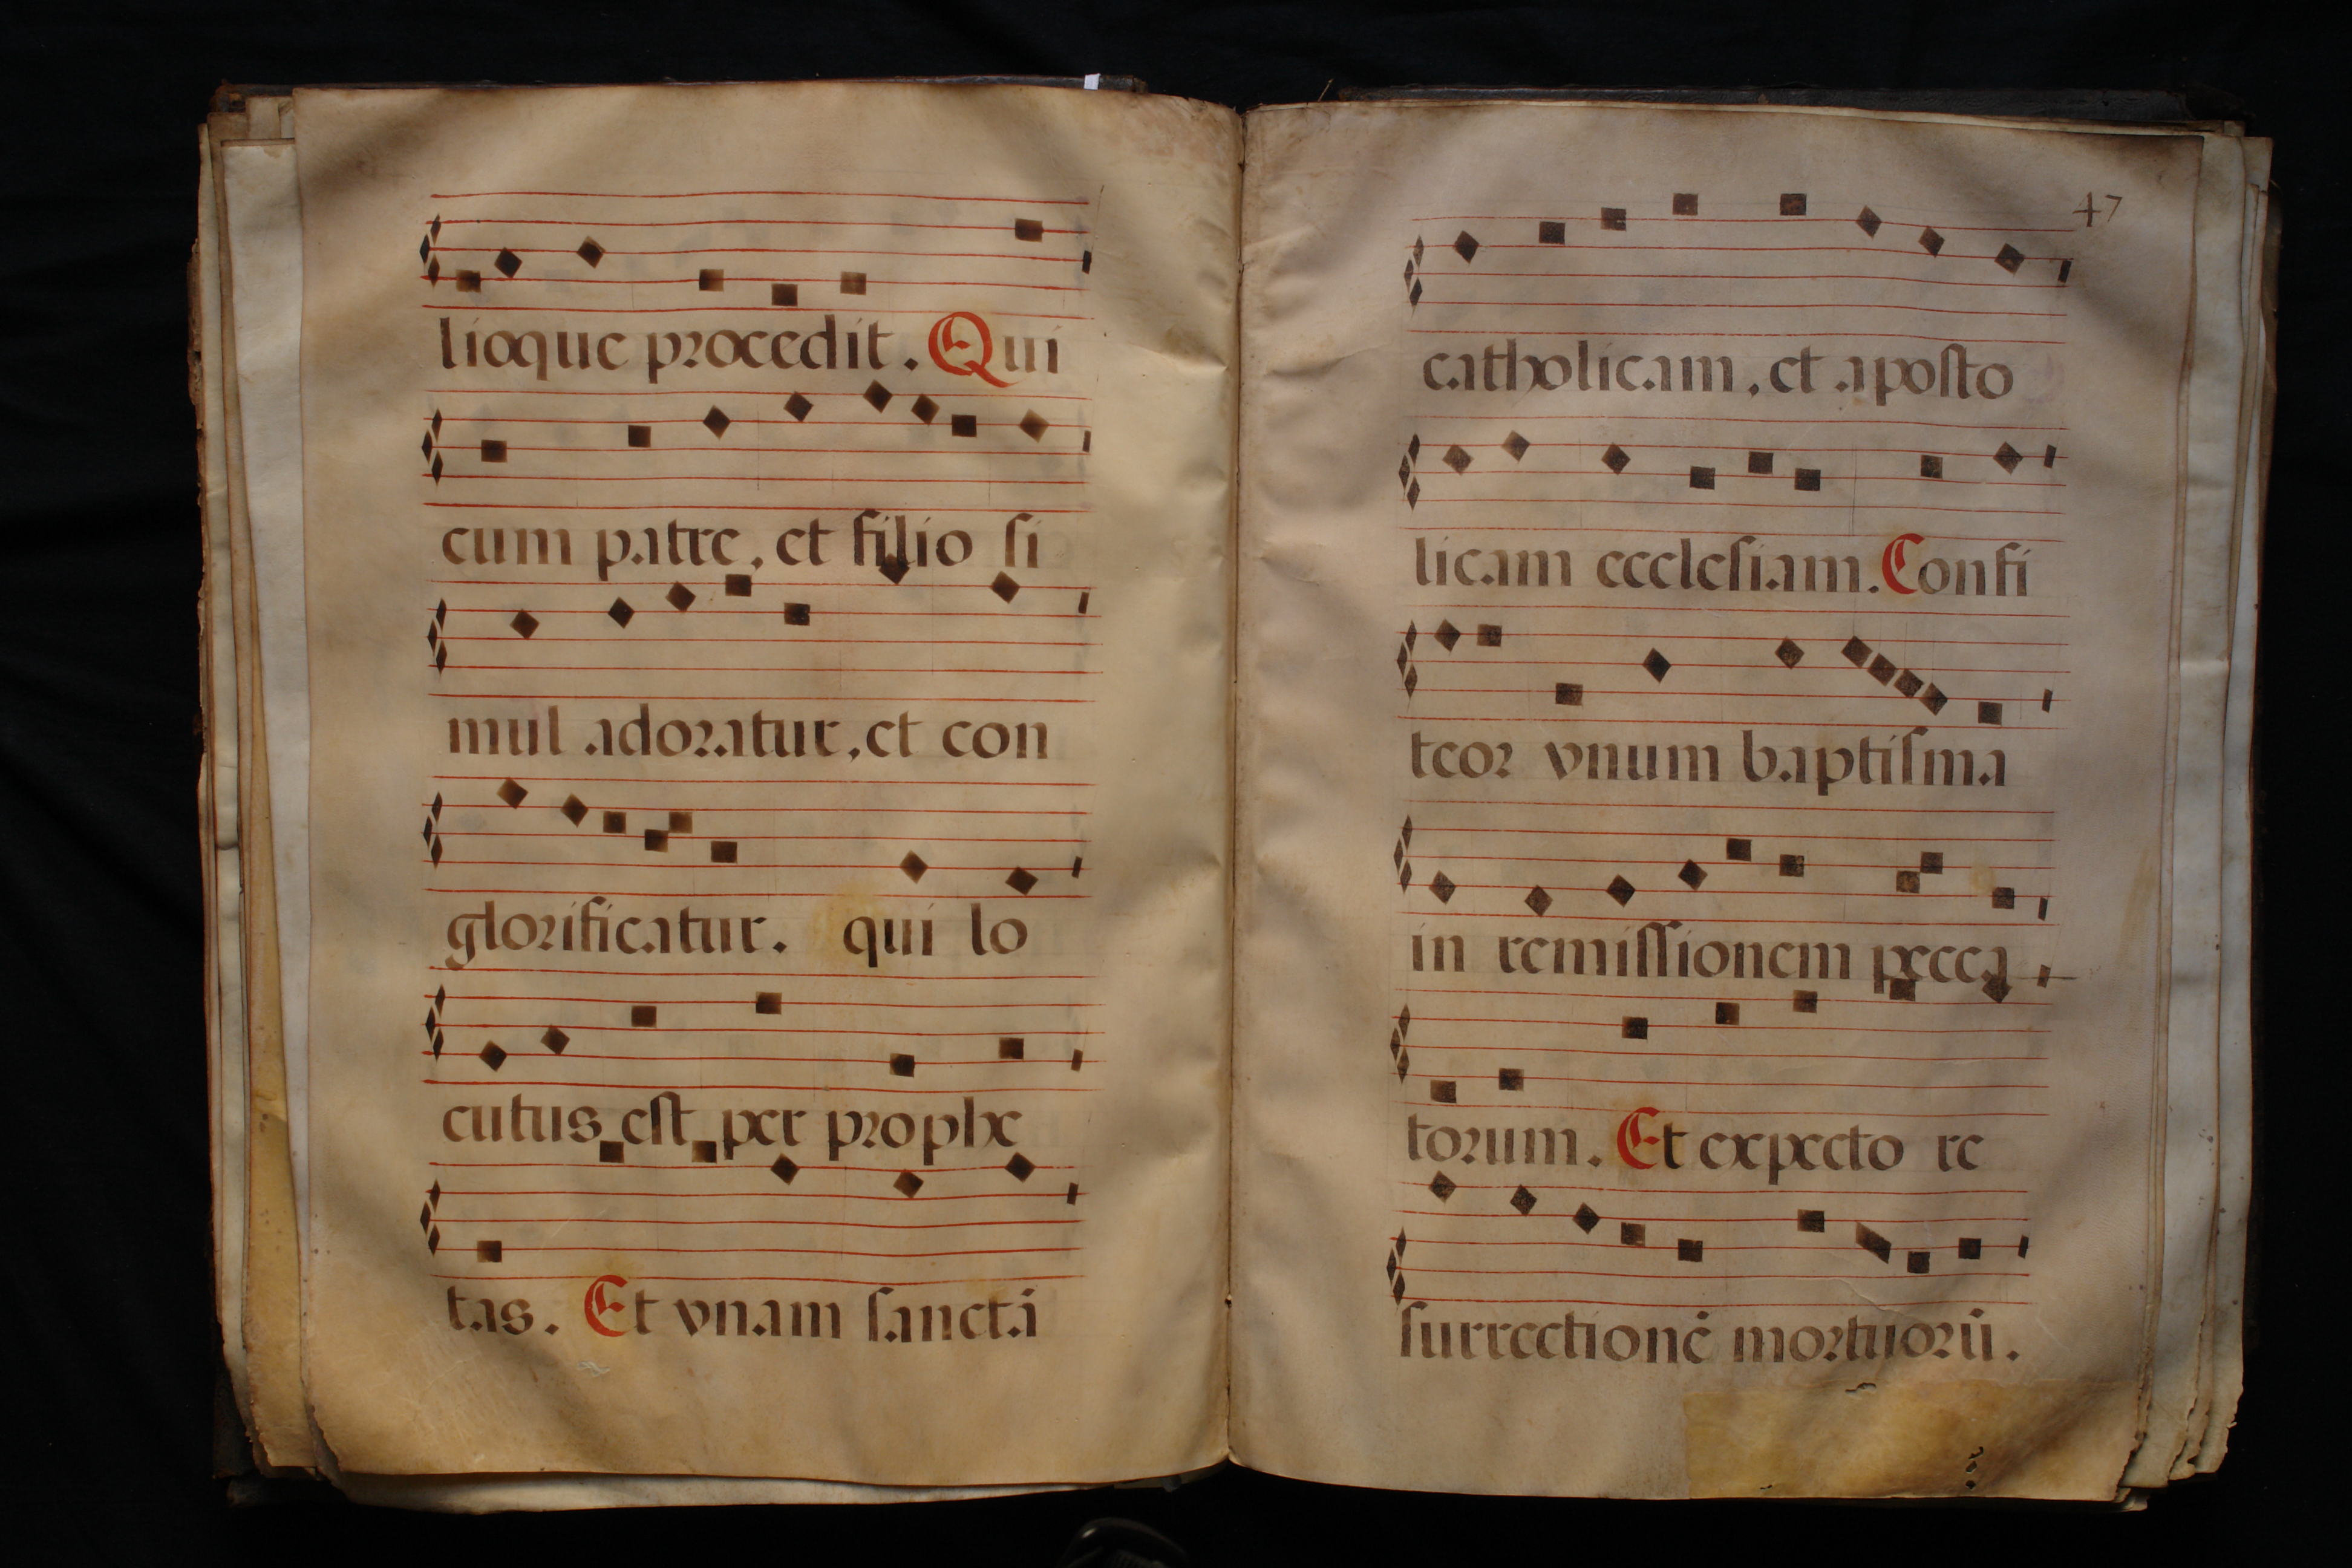 lioque procedit. Qui
cum patre, et filio ſi
mul adoratur, et con
glorificatur. qui lo
cutus eſt per prophe
tas. Et vnam ſanctā
47
catholicam, et apoſto
licam eccleſiam. Confi
teor vnum baptiſma
in remiſſionem pecca
torum. Et expecto re
ſurrectionē mortuorū.